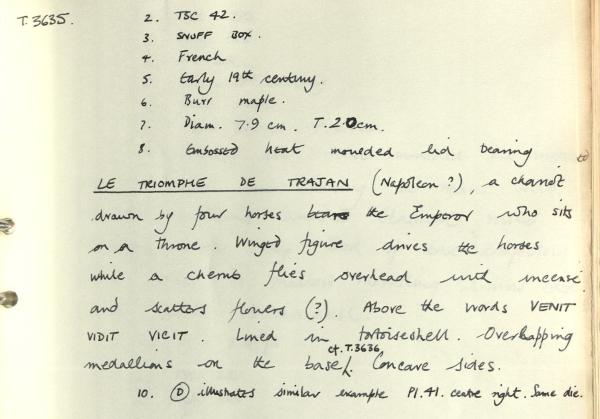 T. 3635.
2. TSC 42.
3. SNUFF BOX.
4. French
5. Early 19th century.
6. Burr maple.
7. Diam. 7.9 cm. T. 2.0cm.
8. Embossed heat moulded lid bearing
LE TRIOMPHE DE TRAJAN (Napoleon?), a chariot
drawn by four horses the Emperor who sits
on a throne. Winged figure drives the horses
while a cherub flies overhead with incense
and scatters flowers (?). Above the words VENIT
VIDIT VICIT. Lined in tortoiseshell. Overlapping
medallions on the base cf. T.3636. Concave sides.
10. D illustrates similar example Pl. 41. centre right. Same die.